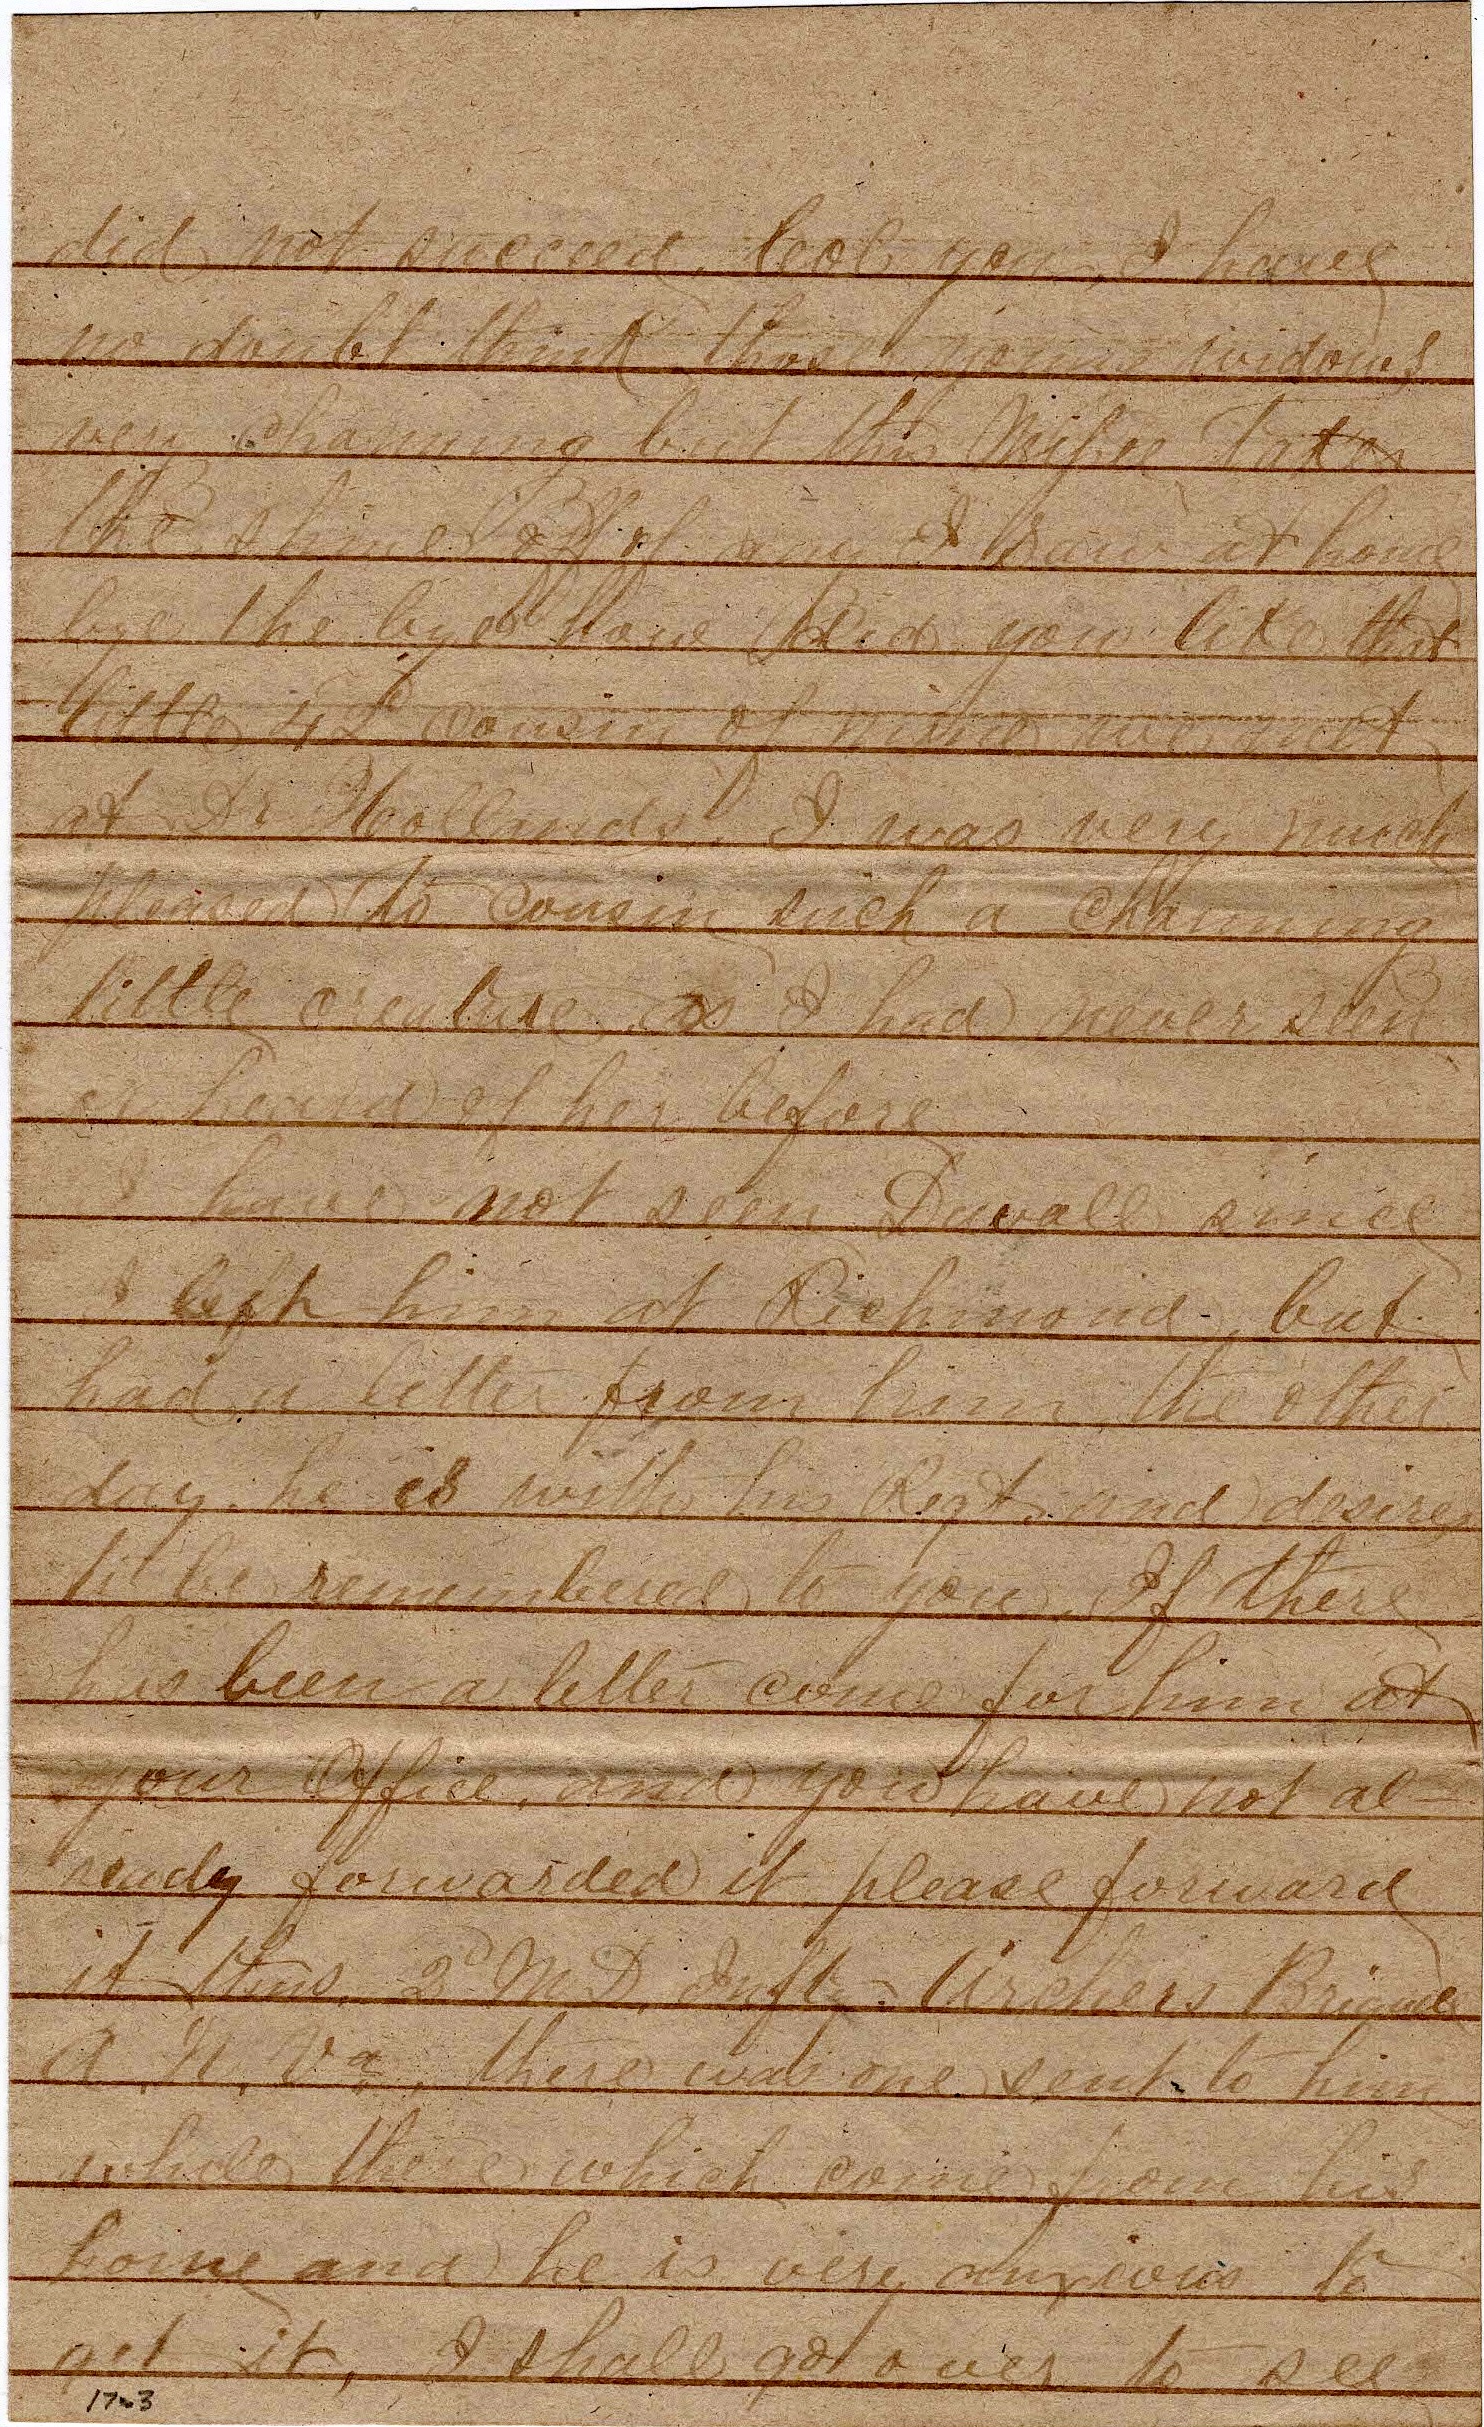 did not succeed. I have
no doubt think those young widows
very charming but this takes
the shine off of any I saw at home
bye the bye how did you like that
little 42d cousin of mine we met
at Dr Hollands. I was very much
pleased to cousin such a charming
little creature as I had never seen
or heard of her before
I have not seen Duvall since
I left him at Richmond - but
had a letter from him the other
day. he is with his Regt and desires
to be remembered to you. If there
has been a letter come for him at
your Office, and you have not al-
ready forwarded it please forward
it thus. 2d M.D. Infty. Archers Brigade
A. N. Va, there was one sent to him
while there which come from his
home and he is very anxious to
get it, I shall go over to see
17-3